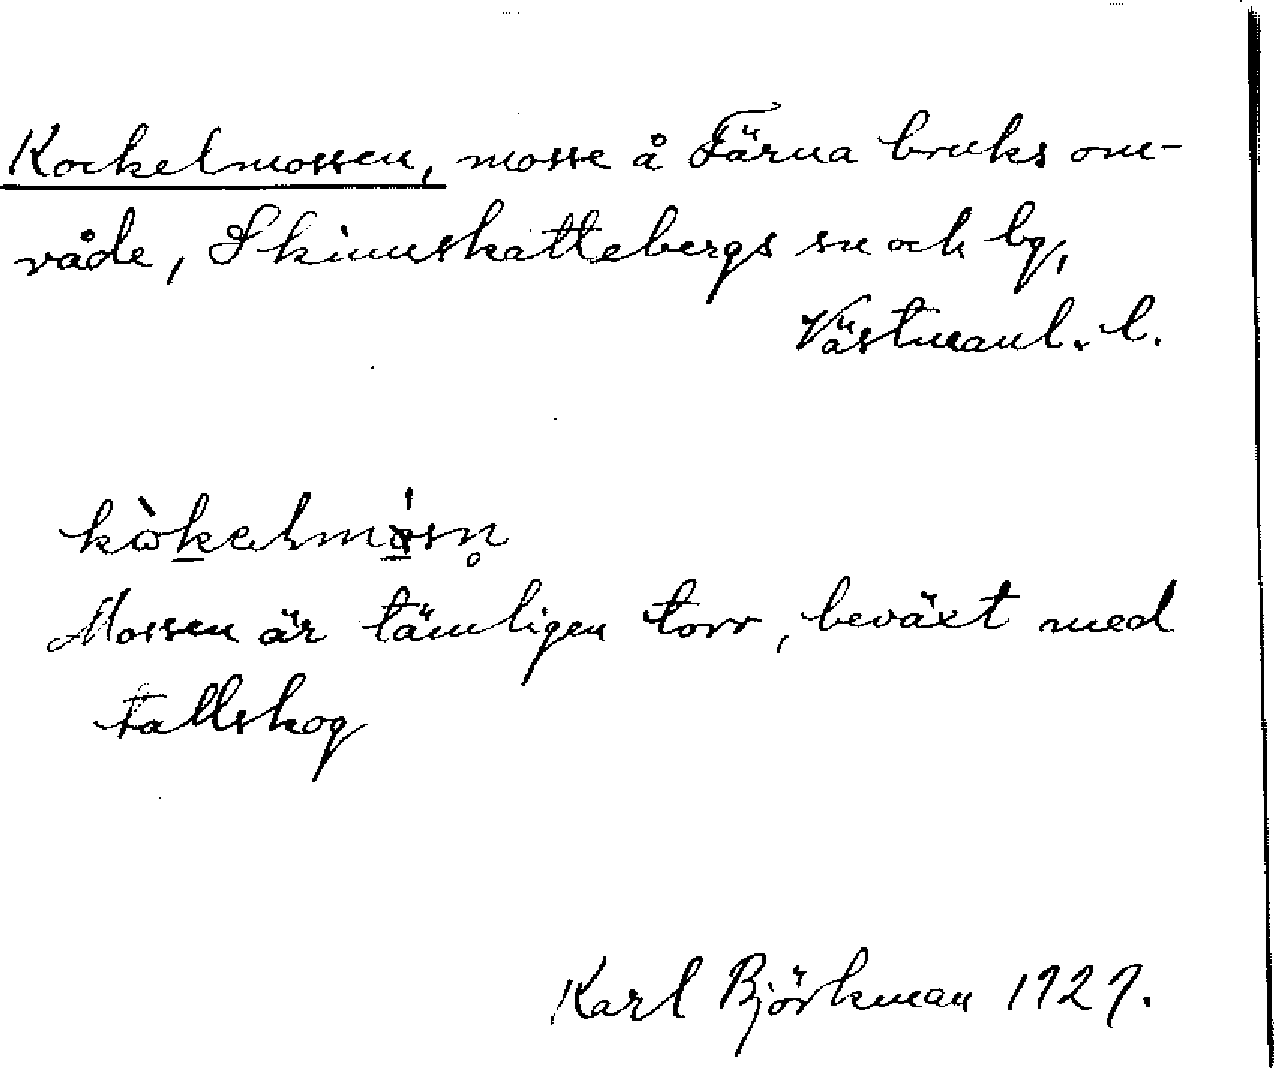 Kockelmossen, mosse å Färna bruks om-
råde, Skinnskattebergs sn och bg,
Västmanl. l.
Mossen är tämligen torr, beväxt med
tallskog
Karl Björkman 1929.